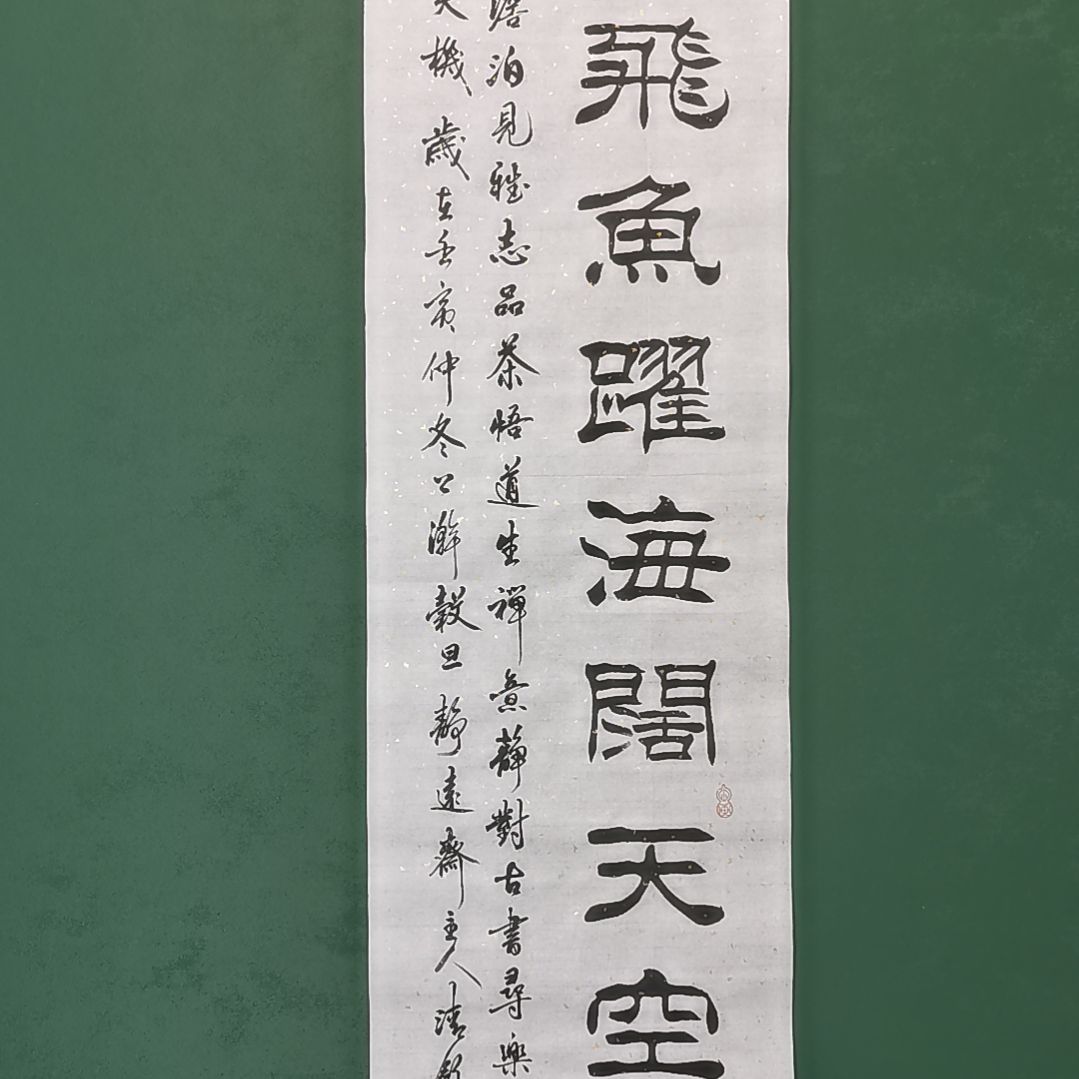 飛魚躍海闊天空
泊見雅志品茶悟道生禪意靜對古書尋樂
天機 歲在壬寅仲冬上澣穀旦靜遠齋主人清